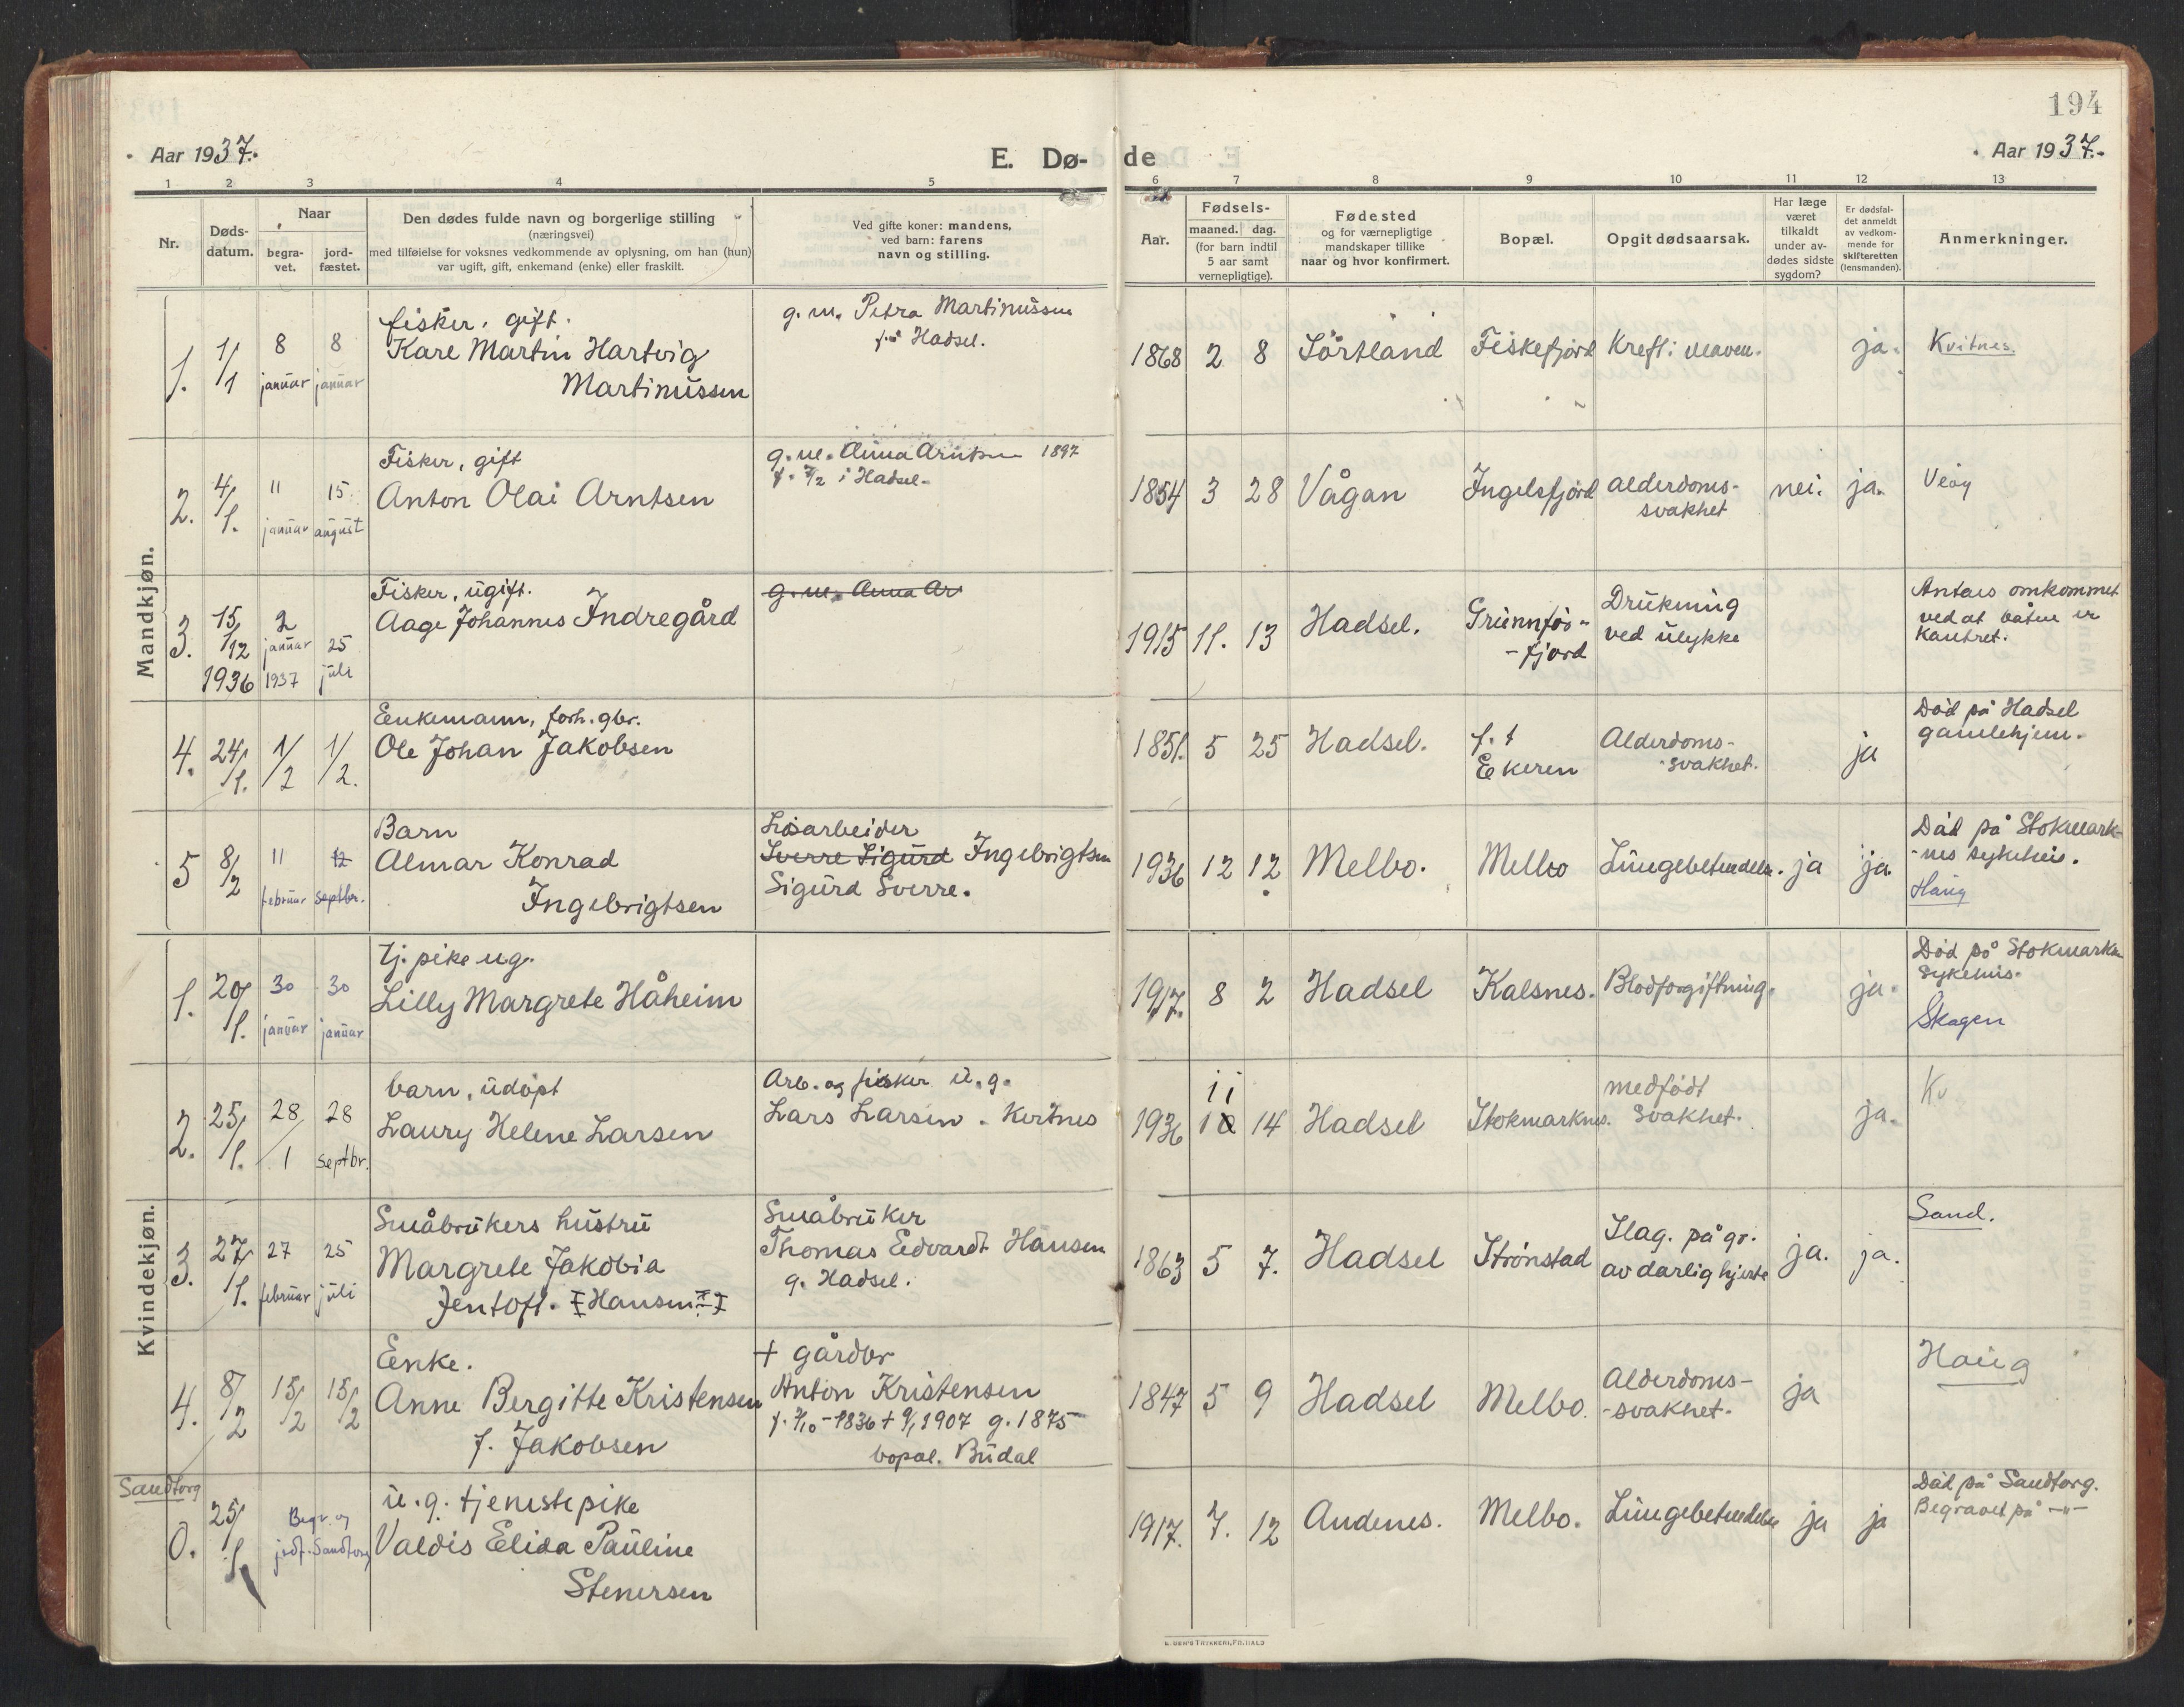 194
Aar 1937.
E. Dø-
de
Aar 1937.
1 2 3 4 5 6 7 8 9 10 11 12 13
Nr.
Døds-
datum.
Naar
begra-
vet.
jord-
fæstet.
Den dødes fulde navn og borgerlige stilling
(næringsvei)
med tilføielse for voksnes vedkommende av oplysning, om han (hun)
var ugift, gift, enkemand (enke) eller fraskilt.
Ved gifte koner: mandens,
ved barn: farens
navn og stilling.
Aar.
Fødsels-
maaned. dag.
(for barn indtil
5 aar samt
vernepligtige).
Fødested
og for værnepligtige
mandskaper tillike
naar og hvor konfirmert.
Bopæl.
Opgit dødsaarsak.
Har læge
været
tilkaldt
under av-
dødes sidste
sygdom?
Er dødsfal-
det anmeldt
av vedkom-
mende for
skifteretten
(lensmanden).
Anmerkninger.
Mandkjøn.
1. 1/1 8 januar 8 januar
fisker, gift.
Kare Martin Hartvig
Martinussen
g. m. Petra Martinussen
Hadsel.
1868 2 8 Sörtland Fiskefjord Kreft i maven. ja. Kvitnes.
2. 4/1. 11 januar 15 august
Fisker, gift
Anton Olai Arntsen
g. m. Anna Arntsen 1897
f. 7/2 i Hadsel.
1854 3 28 Vågan Ingelsfjord Alderdoms-
svakhet
nei. ja.
3. 15/12 1936 2 januar 1937 25 juli
Fisker, ugift.
Aage Johannes Indregård
g. m. Anna Ar
1915 11. 13 Hadsel. Grunnfør-
-fjord
Drukning
ved ulykke
Antaes omkommet
ved at båten er
kantret.
4. 24/1. 1/2 1/2.
Enkemann, forh. gbr.
Ole Johan Jakobsen
1851. 5 25 Hadsel. f. t
Ekeren
Alderdoms-
svakhet.
ja
Død på Hadsel
gamlehjem.
5 8/2 11 februar 12 septbr.
Barn
Almar Konrad
Ingebrigtsen
Løsarbeider
Sverre Sigurd Ingebrigtsen
Sigurd Sverre.
1936 12 12 Melbo. Melbo Lungebetendelse. ja ja
Død på Stokmark-
-nes sykehus.
Haug
Kvindekjøn.
1. 20/1. 30 januar 30 januar
tj. pike ug.
Lilly Margrete Håheim
1917. 8 2 Hadsel Kalsnes. Blodforgiftning. ja.
Død på Stokmarkn.
sykehus.
Skagen
2. 25/1. 28/1 28 septbr.
barn, udöpt
Laury Helene Larsen
Arb. og fisker u. g.
Lars Larsen. Kertnes
1936 11 10 14 Hadsel Stokmarknes. medfødt
svakhet.
ja. Kv
3. 27/1. 27 februar 25 juli
Småbrukers hustru
Margrete Jakobia
Jentoft. Hansen
Småbruker
Thomas Edvardt Hansen
g. Hadsel.
1863 5 7. Hadsel Strønstad Slag. på gr.
av darlig hjerte
ja. ja. Sand.
4. 8/2 15/2 15/2
Enke.
Anne Bergitte Kristensen
f. Jakobsen
+ gårdbr
Anton Kristensen
1836 + 9/1 1907 g. 1875
bopæl. Budal
1847 5 9 Hadsel Melbo. Alderdoms-
-svakhet.
ja Haug
Sandtorg
0. 25/1 Begr. og
jodf. Sandtorg
u. g. tjenestepike
Valdis Elida Pauline
Stenersen
1917. 7. 12 Andenes. Melbo. Lungebetendelse ja ja
Død på Sandtorg.
Begravet på -"-